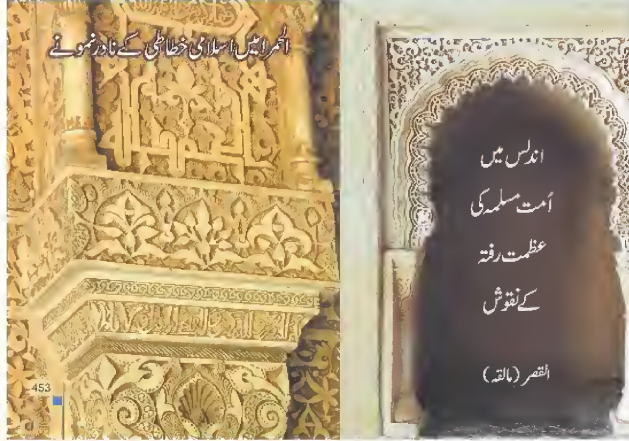 الحمرا میں اسلامی خطاطی کے نادر نمونے
453
اندلس میں
اُمت مسلمہ کی
عظمت رفتہ
کے نقوش
القصر (مالقہ)